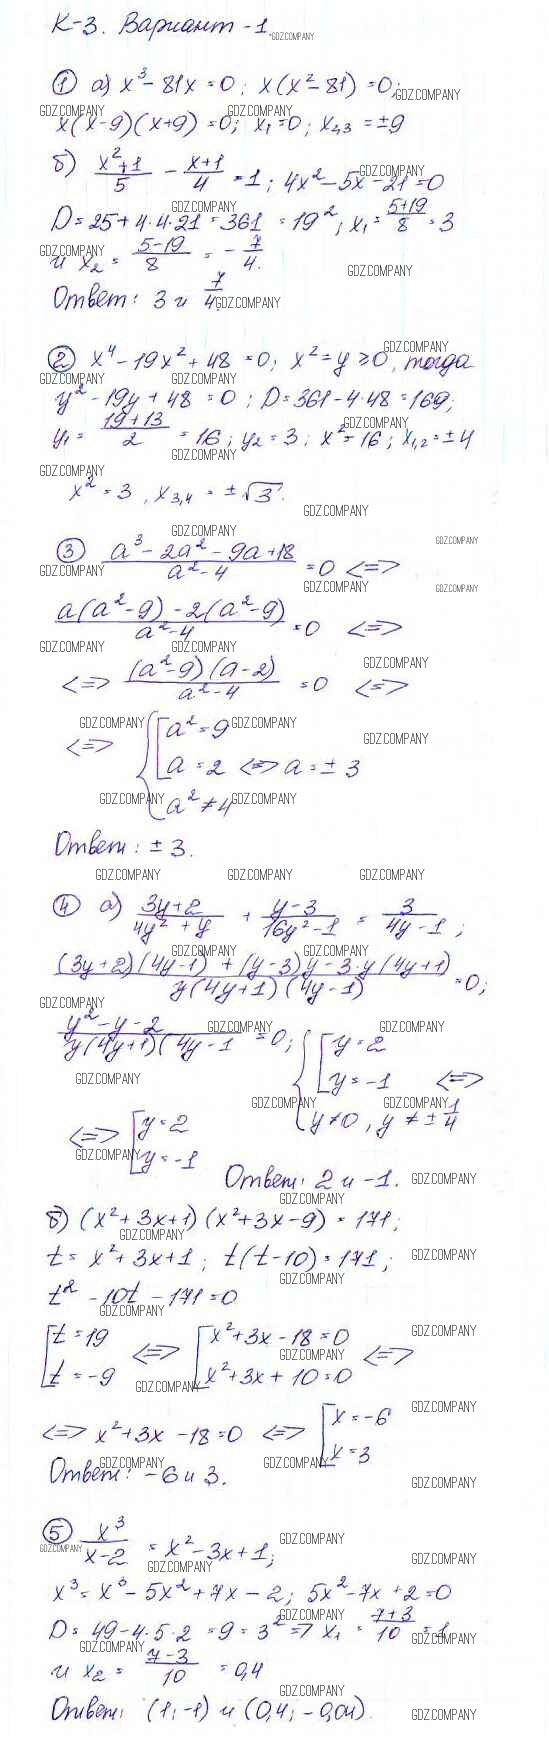 К-3. Вариант -1.
GDZ.COMPANY
① а) x³ - 81x = 0; x(x² - 81) = 0;
x(x-9)(x+9) = 0; x₁ = 0; x₂,₃ = ±9
б) (x²+1)/5 - (x+1)/4 = 1; 4x² - 5x - 21 = 0
D = 25 + 4·4·21 = 361 = 19²; x₁ = (5+19)/8 = 3
и x₂ = (5-19)/8 = -7/4.
Ответ: 3 и 7/4.
② x⁴ - 19x² + 48 = 0; x² = y ≥ 0, тогда
y² - 19y + 48 = 0; D = 361 - 4·48 = 169;
y₁ = (19+13)/2 = 16; y₂ = 3; x² = 16; x₁,₂ = ±4
x² = 3, x₃,₄ = ±√3.
③ (a³ - 2a² - 9a + 18)/(a² - 4) = 0 <=>
(a(a²-9) - 2(a²-9))/(a²-4) = 0 <=>
<=> ((a²-9)(a-2))/(a²-4) = 0 <=>
<=> { [ a² = 9
a = 2 <=> a = ±3
a² ≠ 4
Ответ: ±3.
④ а) (3y+2)/(4y²+y) + (y-3)/(16y²-1) = 3/(4y-1);
((3y+2)(4y-1) + (y-3)y - 3·y(4y+1))/(y(4y+1)(4y-1)) = 0;
(y²-y-2)/(y(4y+1)(4y-1 = 0; { [ y = 2
y = -1 <=>
y ≠ 0, y ≠ ±1/4
<=> [ y = 2
y = -1
Ответ: 2 и -1.
б) (x²+3x+1)(x²+3x-9) = 171;
t = x²+3x+1; t(t-10) = 171;
t² - 10t - 171 = 0
[ t = 19 <=> [ x²+3x-18 = 0 <=>
t = -9 x²+3x+10 = 0
<=> x²+3x-18 = 0 <=> [ x = -6
x = 3
Ответ: -6 и 3.
⑤ x³/(x-2) = x² - 3x + 1;
x³ = x³ - 5x² + 7x - 2; 5x² - 7x + 2 = 0
D = 49 - 4·5·2 = 9 = 3² => x₁ = (7+3)/10 = 1
и x₂ = (7-3)/10 = 0,4
Ответ: (1; -1) и (0,4; -0,04).